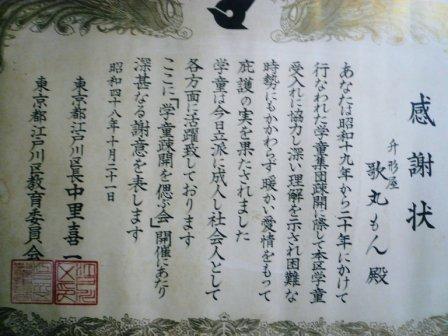 感謝状
升形屋
歌丸もん殿
あなたは昭和十九年から二十年にかけて
行なわれた学童集団疎開に際して本区学童
受入れに協力し深い理解を示され困難な
時勢にもかかわらず暖かい愛情をもって
庇護の実を果たされました
学童は今日立派に成人し社会人として
各方面に活躍致しております
ここに「学童疎開を偲ぶ会」開催にあたり
深甚なる謝意を表します
昭和四十八年十月二十一日
東京都江戸川区長中里喜一
東京都江戸川区教育委員会